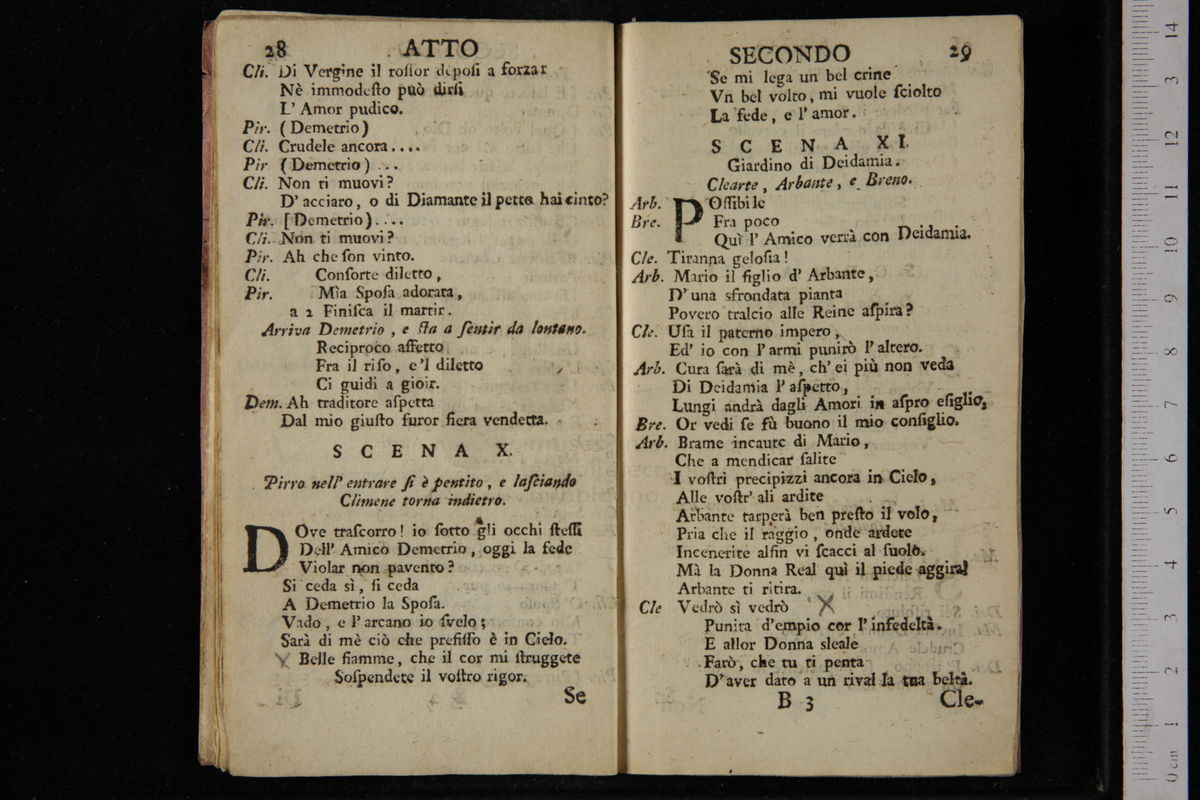 28 ATTO
Cli. Di Vergine il roſſor depoſi a forzar
Nè immodeſto può dirſi
L' Amor pudico.
Pir. (Demetrio)
Cli. Crudele ancora....
Pir (Demetrio)...
Cli. Non ti muovi?
D' acciaro, o di Diamante il petto hai cinto?
Pir. [Demetrio)....
Cli. Non ti muovi?
Pir. Ah che ſon vinto.
Cli. Conſorte diletto,
Pir. Mìa Spoſa adorata,
a 2 Finiſca il martir.
Arriva Demetrio, e ſta a ſentir da lontano.
Reciproco affetto
Fra il riſo, e'l diletto
Ci guidi a gioir.
Dem. Ah traditore aſpetta
Dal mio giuſto furor fiera vendetta.
SCENA X.
Pirro nell' entrare ſi è pentito, e laſciando
Climene torna indietro.
DOve traſcorro! io ſotto gli occhi ſteſſi
Dell' Amico Demetrio, oggi la fede
Violar non pavento?
Si ceda sì, ſi ceda
A Demetrio la Spoſa.
Vado, e l' arcano io ſvelo;
Sarà di mè ciò che prefiſſo è in Cielo.
Belle fiamme, che il cor mi ſtruggete
Soſpendete il voſtro rigor.
Se
SECONDO 29
Se mi lega un bel crine
Vn bel volto, mi vuole ſciolto
La fede, e l' amor.
SCENA XI.
Giardino di Deidamia.
Clearte, Arbante, e Breno.
Arb. POſſibile
Bre. Fra poco
Quì l' Amico verrà con Deidamia.
Cle. Tiranna geloſia!
Arb. Mario il figlio d' Arbante,
D' una sfrondata pianta
Povero tralcio alle Reine aſpira?
Cle. Uſa il paterno impero,
Ed' io con l' armi punirò l' altero.
Arb. Cura ſarà di mè, ch' ei più non veda
Di Deidamia l' aſpetto,
Lungi andrà dagli Amori in aſpro eſiglio,
Bre. Or vedi ſe fù buono il mio conſiglio.
Arb. Brame incaute di Mario,
Che a mendicar ſalite
I voſtri precipizzi ancora in Cielo,
Alle voſtr' ali ardite
Arbante tarperà ben preſto il volo,
Pria che il raggio, onde ardete
Incenerite alfin vi ſcacci al ſuolo.
Mà la Donna Real quì il piede aggira!
Arbante ti ritira.
Cle Vedrò sì vedrò
Punita d'empio cor l' infedeltà.
E allor Donna sleale
Farò, che tu ti penta
D' aver dato a un rival la tua beltà.
B 3 Cle-